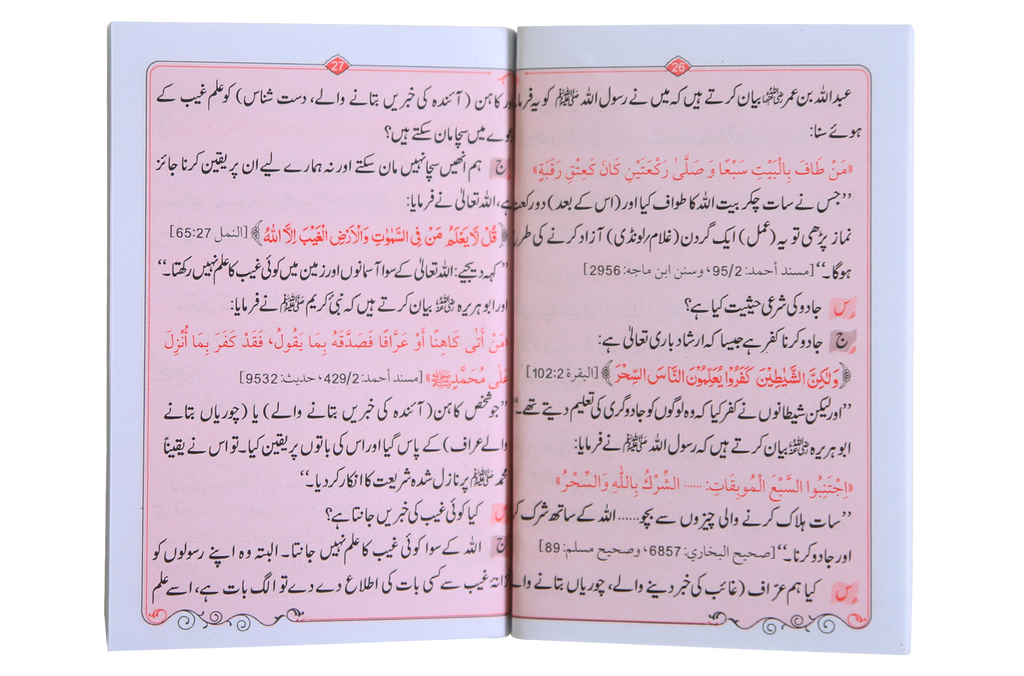 26
عبداللہ بن عمر رضی اللہ عنہما بیان کرتے ہیں کہ میں نے رسول اللہ ﷺ کو یہ
ہوئے سنا:
«مَنْ طَافَ بِالْبَيْتِ سَبْعًا وَ صَلَّى رَكْعَتَيْنِ كَانَ كَعِتْقِ رَقَبَةٍ»
’’جس نے سات چکر بیت اللہ کا طواف کیا اور (اس کے بعد) دو
نماز پڑھی تو یہ (عمل) ایک گردن (غلام/لونڈی) آزاد کرنے کی
ہوگا۔‘‘ [مسند أحمد: 95/2، وسنن ابن ماجه: 2956]
س جادو کی شرعی حیثیت کیا ہے؟
ج جادو کرنا کفر ہے جیسا کہ ارشاد باری تعالیٰ ہے:
﴿وَلٰكِنَّ الشَّيٰطِيْنَ كَفَرُوْا يُعَلِّمُوْنَ النَّاسَ السِّحْرَ﴾ [البقرة 102:2]
’’اور لیکن شیطانوں نے کفر کیا کہ وہ لوگوں کو جادوگری کی تعلیم دیتے تھے۔‘‘
ابو ہریرہ رضی اللہ عنہ بیان کرتے ہیں کہ رسول اللہ ﷺ نے فرمایا:
«اِجْتَنِبُوا السَّبْعَ الْمُوبِقَاتِ: ...... الشِّرْكُ بِاللّٰهِ وَالسِّحْرُ»
’’سات ہلاک کرنے والی چیزوں سے بچو...... اللہ کے ساتھ شرک
اور جادو کرنا۔‘‘ [صحيح البخاري: 6857، وصحيح مسلم: 89]
س کیا ہم عرّاف (غائب کی خبر دینے والے، چوریاں بتانے
27
کاہن (آئندہ کی خبریں بتانے والے، دست شناس) کو علم غیب کے
میں سچا مان سکتے ہیں؟
ج ہم انھیں سچا نہیں مان سکتے اور نہ ہمارے لیے ان پر یقین کرنا جائز
ہے، اللہ تعالیٰ نے فرمایا:
﴿قُلْ لَّا يَعْلَمُ مَنْ فِي السَّمٰوٰتِ وَالْاَرْضِ الْغَيْبَ اِلَّا اللّٰهُ﴾ [النمل 65:27]
’’کہہ دیجیے: اللہ تعالیٰ کے سوا آسمانوں اور زمین میں کوئی غیب کا علم نہیں رکھتا۔‘‘
اور ابو ہریرہ رضی اللہ عنہ بیان کرتے ہیں کہ نبیٔ کریم ﷺ نے فرمایا:
مَنْ أَتٰى كَاهِنًا أَوْ عَرَّافًا فَصَدَّقَهُ بِمَا يَقُولُ، فَقَدْ كَفَرَ بِمَا أُنْزِلَ
عَلٰى مُحَمَّدٍ ﷺ» [مسند أحمد: 429/2، حديث: 9532]
’’جو شخص کاہن (آئندہ کی خبریں بتانے والے) یا (چوریاں بتانے
والے عراف) کے پاس گیا اور اس کی باتوں پر یقین کیا۔ تو اس نے یقیناً
محمد ﷺ پر نازل شدہ شریعت کا انکار کر دیا۔‘‘
س کیا کوئی غیب کی خبریں جانتا ہے؟
ج اللہ کے سوا کوئی غیب کا علم نہیں جانتا۔ البتہ وہ اپنے رسولوں کو
غیب سے کسی بات کی اطلاع دے دے تو الگ بات ہے، اسے علم